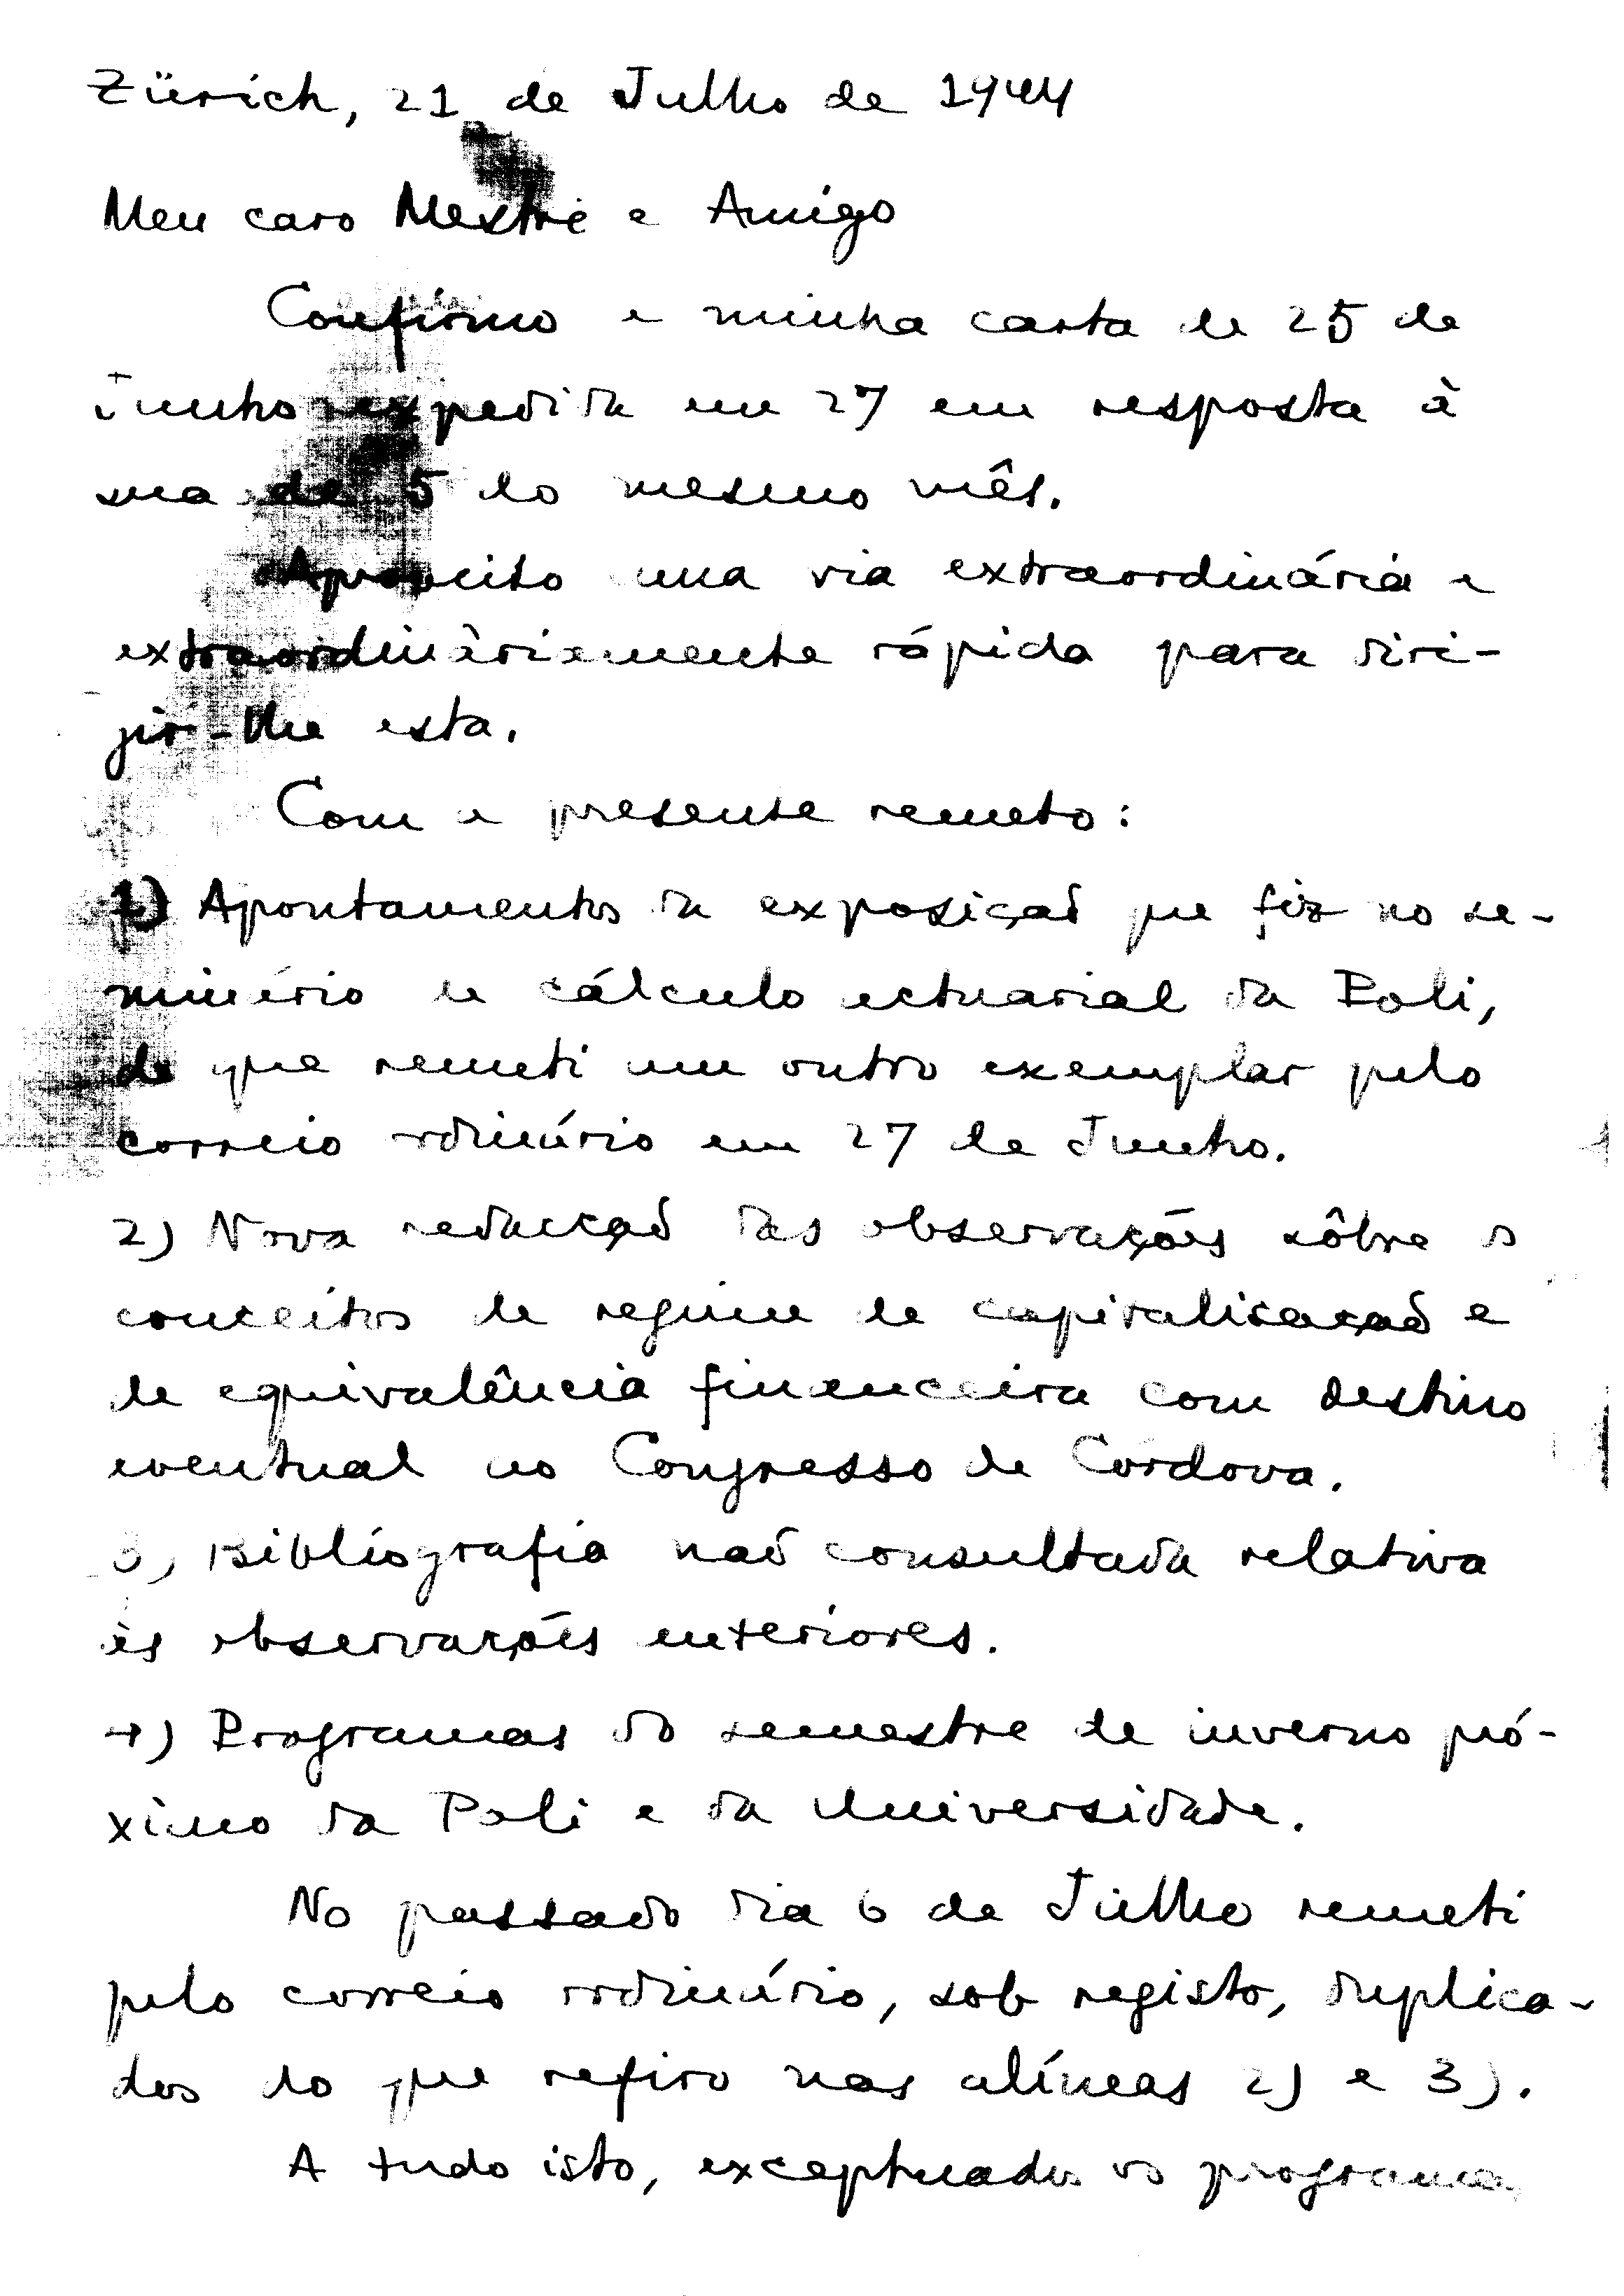 Zürich, 21 de Julho de 1944
Meu caro Mestre e Amigo
Confirmo a minha carta de 25 de
Junho expedida em 27 em resposta à
sua de 5 do mesmo mês.
Aproveito uma via extraordinária e
extraordinàriamente rápida para diri-
gir-lhe esta.
Com a presente remeto:
1) Apontamentos da exposição que fiz no se-
minário de cálculo actuarial da Poli,
de que remeti um outro exemplar pelo
correio ordinário em 27 de Junho.
2) Nova redacção das observações sôbre o
conceitos de regime de capitalisação e
de equivalência financeira com destino
eventual ao Congresso de Córdova.
3) Bibliografia não consultada relativa
às observações anteriores.
4) Programas do semestre de inverno pró-
ximo da Poli e da Universidade.
No passado dia 6 de Julho remeti
pelo correio ordinário, sob registo, duplica-
dos do que refiro nas alíneas 2) e 3).
A tudo isto, exceptuados os programas